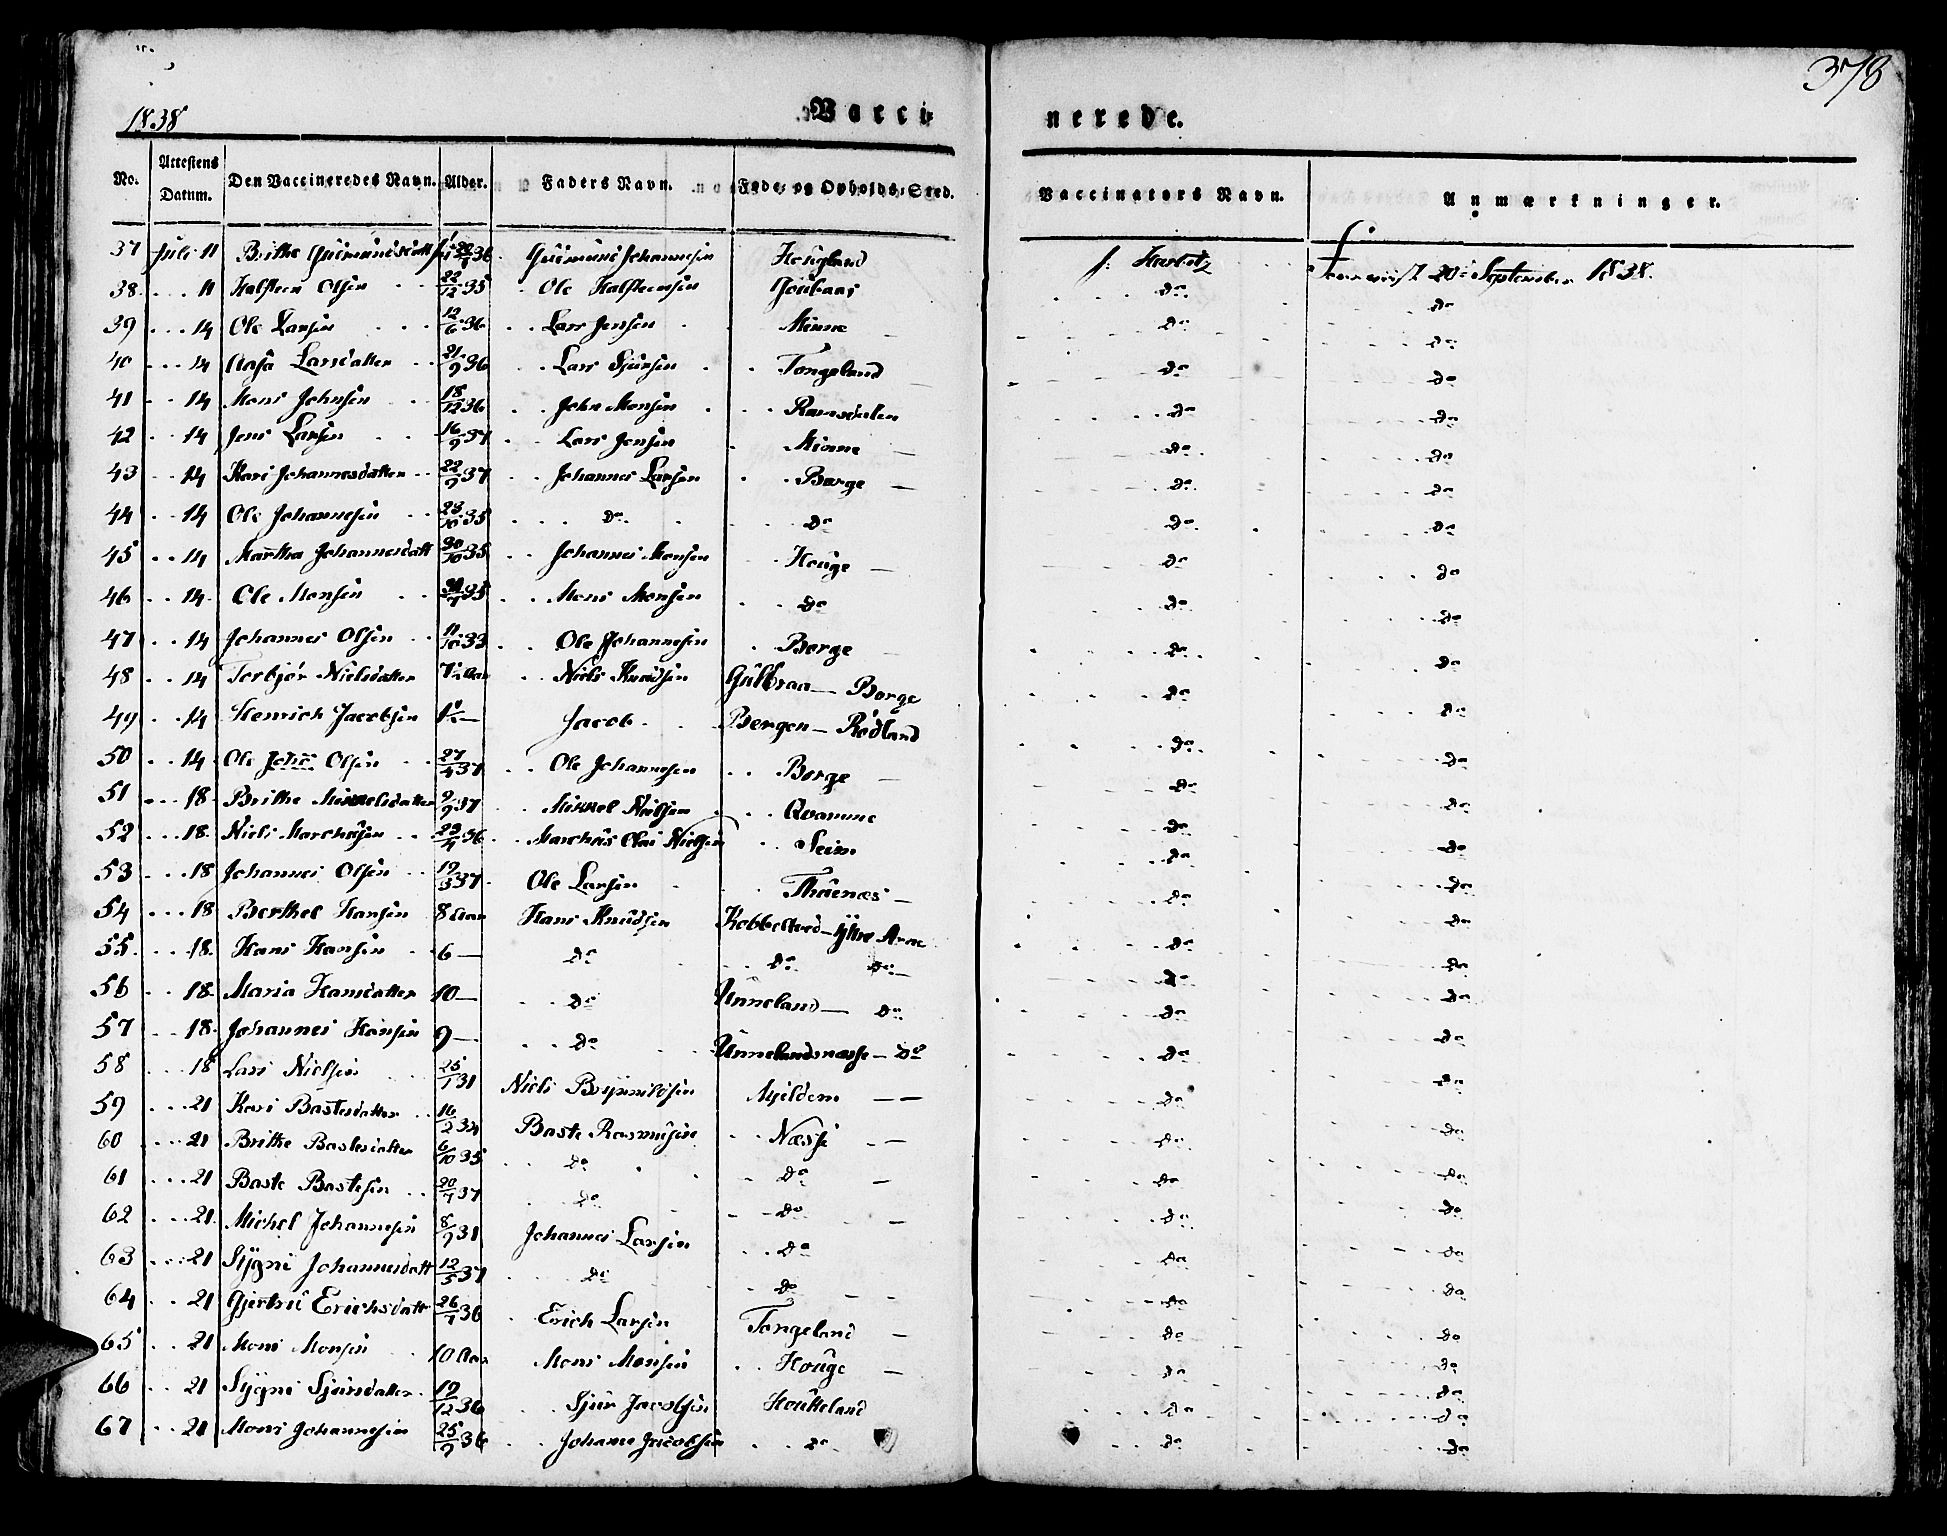 378
1838 Vacci- nerede.
No. Attestens Datum. Den Vaccineredes Navn. Alder. Faders Navn. Føde- og Opholds-Sted. Vaccinators Navn. Anmærkninger.
37 Juli 11 Brithe Gudmundsdatt 36 Gudmund Johannesen Hougland September 1838.
38 11 Halsteen Olsen 22/12 35 Ole Halsteensen do do
39 14 Ole Larsen 12/6 36 Lars Jensen Minne do do
40 14 Aasa Larsdatter 21/9 36 Lars Sjursen Tongeland do do
41 14 Mons Johnsen 18/12 36 John Monsen Ramsdalen do do
42 14 Jens Larsen 16/9 37 Lars Jensen Minne do do
43 14 Kari Johannesdatter 22/9 37 Johannes Larsen Borge do do
44 14 Ole Johannesen 23/10 35 do do do do
45 14 Martha Johannesdatt 30/10 35 Johannes Monsen Houge do do
46 14 Ole Monsen 35 Mons Monsen do do do
47 14 Johannes Olsen 11/10 33 Ole Johannesen Borge do do
48 14 Torbjør Nielsdatter Aar Niels Knudsen Gulbraa — Borge do do
49 14 Henrich Jacobsen 1½ — Jacob Bergen — Rødland do do
50 14 Ole Johs Olsen 27/4 37 Ole Johannesen Borge do do
51 18 Brithe Mikkelsdatter 9/9 37 Mikkel Nielsen Qvamme do do
52 18 Niels Marchusen 23/4 36 Marchus Olai Nielsen Seim do do
53 18 Johannes Olsen 19/3 37 Ole Larsen Thuenæs do do
54 18 Berthel Hansen 8 Aar Hans Knudsen Kobbeltved — Ytre Arne do do
55 18 Hans Hansen 6 — do do do do do
56 18 Maria Hansdatter 10 — do Unneland — do do do
57 18 Johannes Hansen 9 — do Unnelandsnæsse — do do do
58 18 Lars Nielsen 25/1 31 Niels Brynnildsen Mjeldem do do
59 21 Kari Bastesdatter 16/2 34 Baste Rasmusen Næsse do do
60 21 Brithe Bastesdatter 6/10 35 do do do do
61 21 Baste Bastesen 20/7 37 do do do do
62 21 Michel Johannesen 8/9 31 Johannes Larsen do do do
63 21 Sygni Johannesdatt 12/5 37 do do do do
64 21 Gjertrud Erichsdatt 26/7 36 Erich Larsen Tongeland do do
65 21 Mons Monsen 10 Aar Mons Monsen Houge do do
66 21 Sygni Sjursdatter 19/12 36 Sjur Jacobsen Houkeland do do
67 21 Mons Johannesen 25/9 36 Johanes Jacobsen do do do